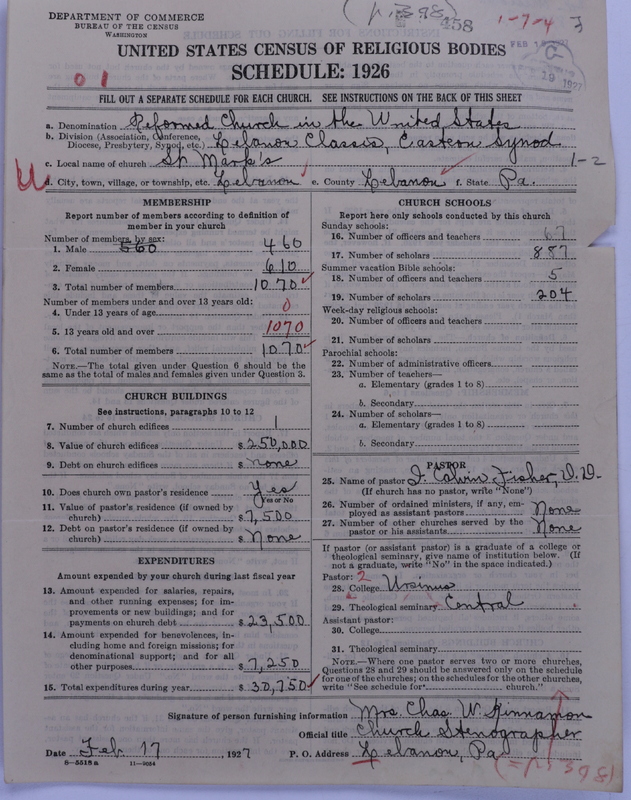 DEPARTMENT OF COMMERCE
BUREAU OF THE CENSUS
WASHINGTON
(p. 398)
1-7-4
UNITED STATES CENSUS OF RELIGIOUS BODIES
SCHEDULE: 1926
0 1
FILL OUT A SEPARATE SCHEDULE FOR EACH CHURCH. SEE INSTRUCTIONS ON THE BACK OF THIS SHEET
a. Denomination Reformed Church in the United States
b. Division (Association, Conference, Diocese, Presbytery, Synod, etc.) Lebanon Classis, Eastern Synod
c. Local name of church St Mark's
1-2
d. City, town, village, or township, etc. Lebanon e. County Lebanon f. State Pa.
MEMBERSHIP
Report number of members according to definition of
member in your church
Number of members, by sex:
1. Male 560 460
2. Female 610
3. Total number of members 1070
Number of members under and over 13 years old:
4. Under 13 years of age 0
5. 13 years old and over 1070
6. Total number of members 1070
NOTE.—The total given under Question 6 should be the
same as the total of males and females given under Question 3.
CHURCH BUILDINGS
See instructions, paragraphs 10 to 12
7. Number of church edifices 1
8. Value of church edifices $250,000
9. Debt on church edifices $none
10. Does church own pastor's residence Yes
Yes or No
11. Value of pastor's residence (if owned by
church) $7,500
12. Debt on pastor's residence (if owned by
church) $None
EXPENDITURES
Amount expended by your church during last fiscal year
13. Amount expended for salaries, repairs,
and other running expenses; for im-
provements or new buildings; and for
payments on church debt $23,500
14. Amount expended for benevolences, in-
cluding home and foreign missions; for
denominational support; and for all
other purposes $7,250
15. Total expenditures during year $30,750
CHURCH SCHOOLS
Report here only schools conducted by this church
Sunday schools:
16. Number of officers and teachers 67
17. Number of scholars 887
Summer vacation Bible schools:
18. Number of officers and teachers 5
19. Number of scholars 204
Week-day religious schools:
20. Number of officers and teachers
21. Number of scholars
Parochial schools:
22. Number of administrative officers
23. Number of teachers—
a. Elementary (grades 1 to 8)
b. Secondary
24. Number of scholars—
a. Elementary (grades 1 to 8)
b. Secondary
PASTOR
25. Name of pastor I. Calvin Fisher, D.D.
(If church has no pastor, write "None")
26. Number of ordained ministers, if any, em-
ployed as assistant pastors None
27. Number of other churches served by the
pastor or his assistants None
If pastor (or assistant pastor) is a graduate of a college or
theological seminary, give name of institution below. (If
not a graduate, write "No" in the space indicated.)
Pastor: 2
28. College Ursinus
29. Theological seminary Central
Assistant pastor:
30. College
31. Theological seminary
NOTE.—Where one pastor serves two or more churches,
Questions 28 and 29 should be answered only on the schedule
for one of the churches; on the schedules for the other churches,
write "See schedule for church."
Signature of person furnishing information Mrs. Chas. W. Kinnamon
Official title Church Stenographer
Date Feb 17, 1927 P. O. Address Lebanon, Pa
8-5518a 11-9054
(= p. 398)